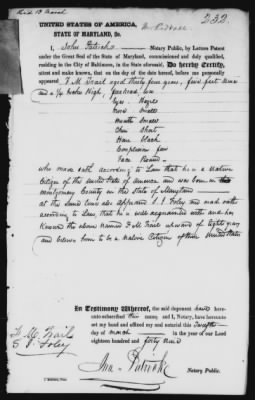 Rec'd 13 March
232.
UNITED STATES OF AMERICA,
STATE OF MARYLAND, Sc.
I, John Patrick Notary Public, by Letters Patent
under the Great Seal of the State of Maryland, commissioned and duly qualified,
residing in the City of Baltimore, in the State aforesaid, Do hereby Certify,
attest and make known, that on the day of the date hereof, before me personally
appeared F. M. Trail aged thirty four years, five feet nine
and a 1/2 Inches High, forehead low
Eyes Hazel
Nose Small
Mouth Small
Chin Short
Hair black
Complexion fair
Face Round
who made oath according to Law that he is a native
Citizen of the United States of America and was born in
Montgomery County in the State of Maryland
at the same time also appeared S. S. Foley and made oath
according to Law, that he is well acquainted with and has
Known the above named F M Trail upward of Eighty years
and believe him to be a Native Citizen of the United States
In Testimony Whereof, the said deponent have here-
unto subscribed their names, and I, Notary, have hereunto
set my hand and affixed my seal notarial this Twelfth
day of March in the year of our Lord
eighteen hundred and forty nine
F. M. Trail
S. S. Foley
Jno. Patrick
Notary Public.